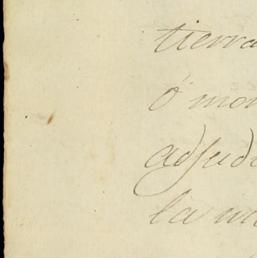 tierra
ó mon
adjud
la m